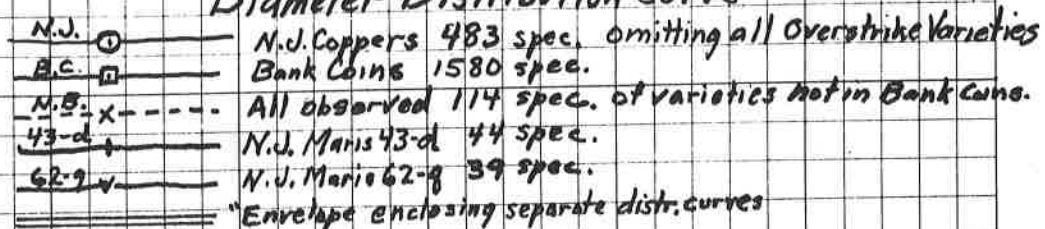 Diameter Distribution Curve
N.J. N.J. Coppers 483 spec. omitting all Overstrike Varieties
B.C. Bank Coins 1580 spec.
N.B. All observed 114 spec. of varieties not in Bank Coins.
43-d N.J. Maris 43-d 44 spec.
62-q N.J. Maris 62-q 39 spec.
"Envelope enclosing separate distr. curves